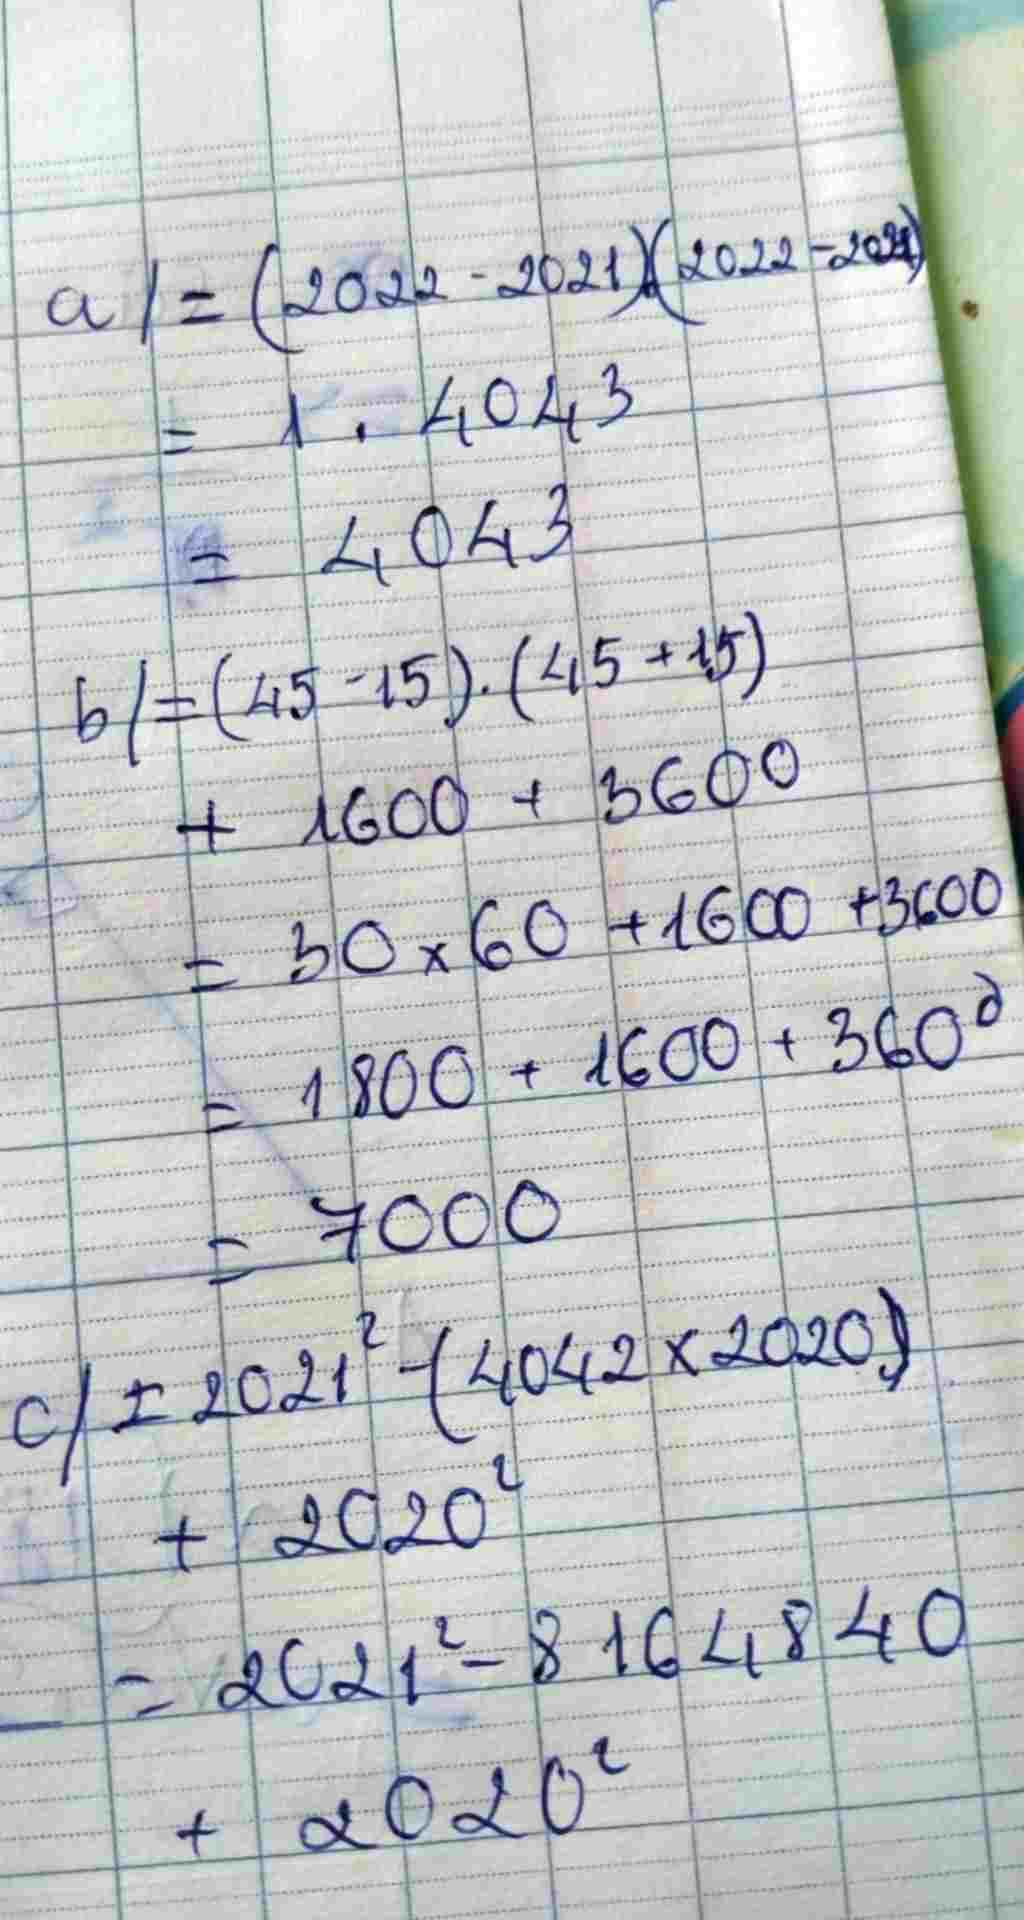 a/ = (2022 - 2021)(2022 - 2021)
= 1 . 4043
= 4043
b/ = (45 - 15) . (45 + 15)
+ 1600 + 3600
= 30 x 60 + 1600 + 3600
= 1800 + 1600 + 3600
= 7000
c/ = 2021² - (4042 x 2020)
+ 2020²
= 2021² - 8164840
+ 2020²